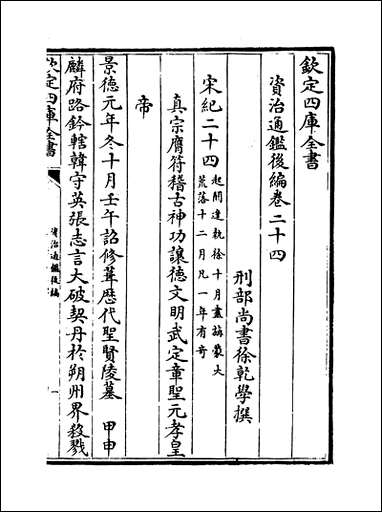 欽定四庫全書
資治通鑑後編卷二十四
刑部尚書徐乾學撰
宋紀二十四
起閼逢執徐十月盡旃蒙大
荒落十二月凡一年有奇
真宗膺符稽古神功讓德文明武定章聖元孝皇
帝
景德元年冬十月壬午詔修葺歷代聖賢陵墓 甲申
麟府路鈐轄韓守英張志言大破契丹於朔州界殺戮
欽定四庫全書
資治通鑑後編
一